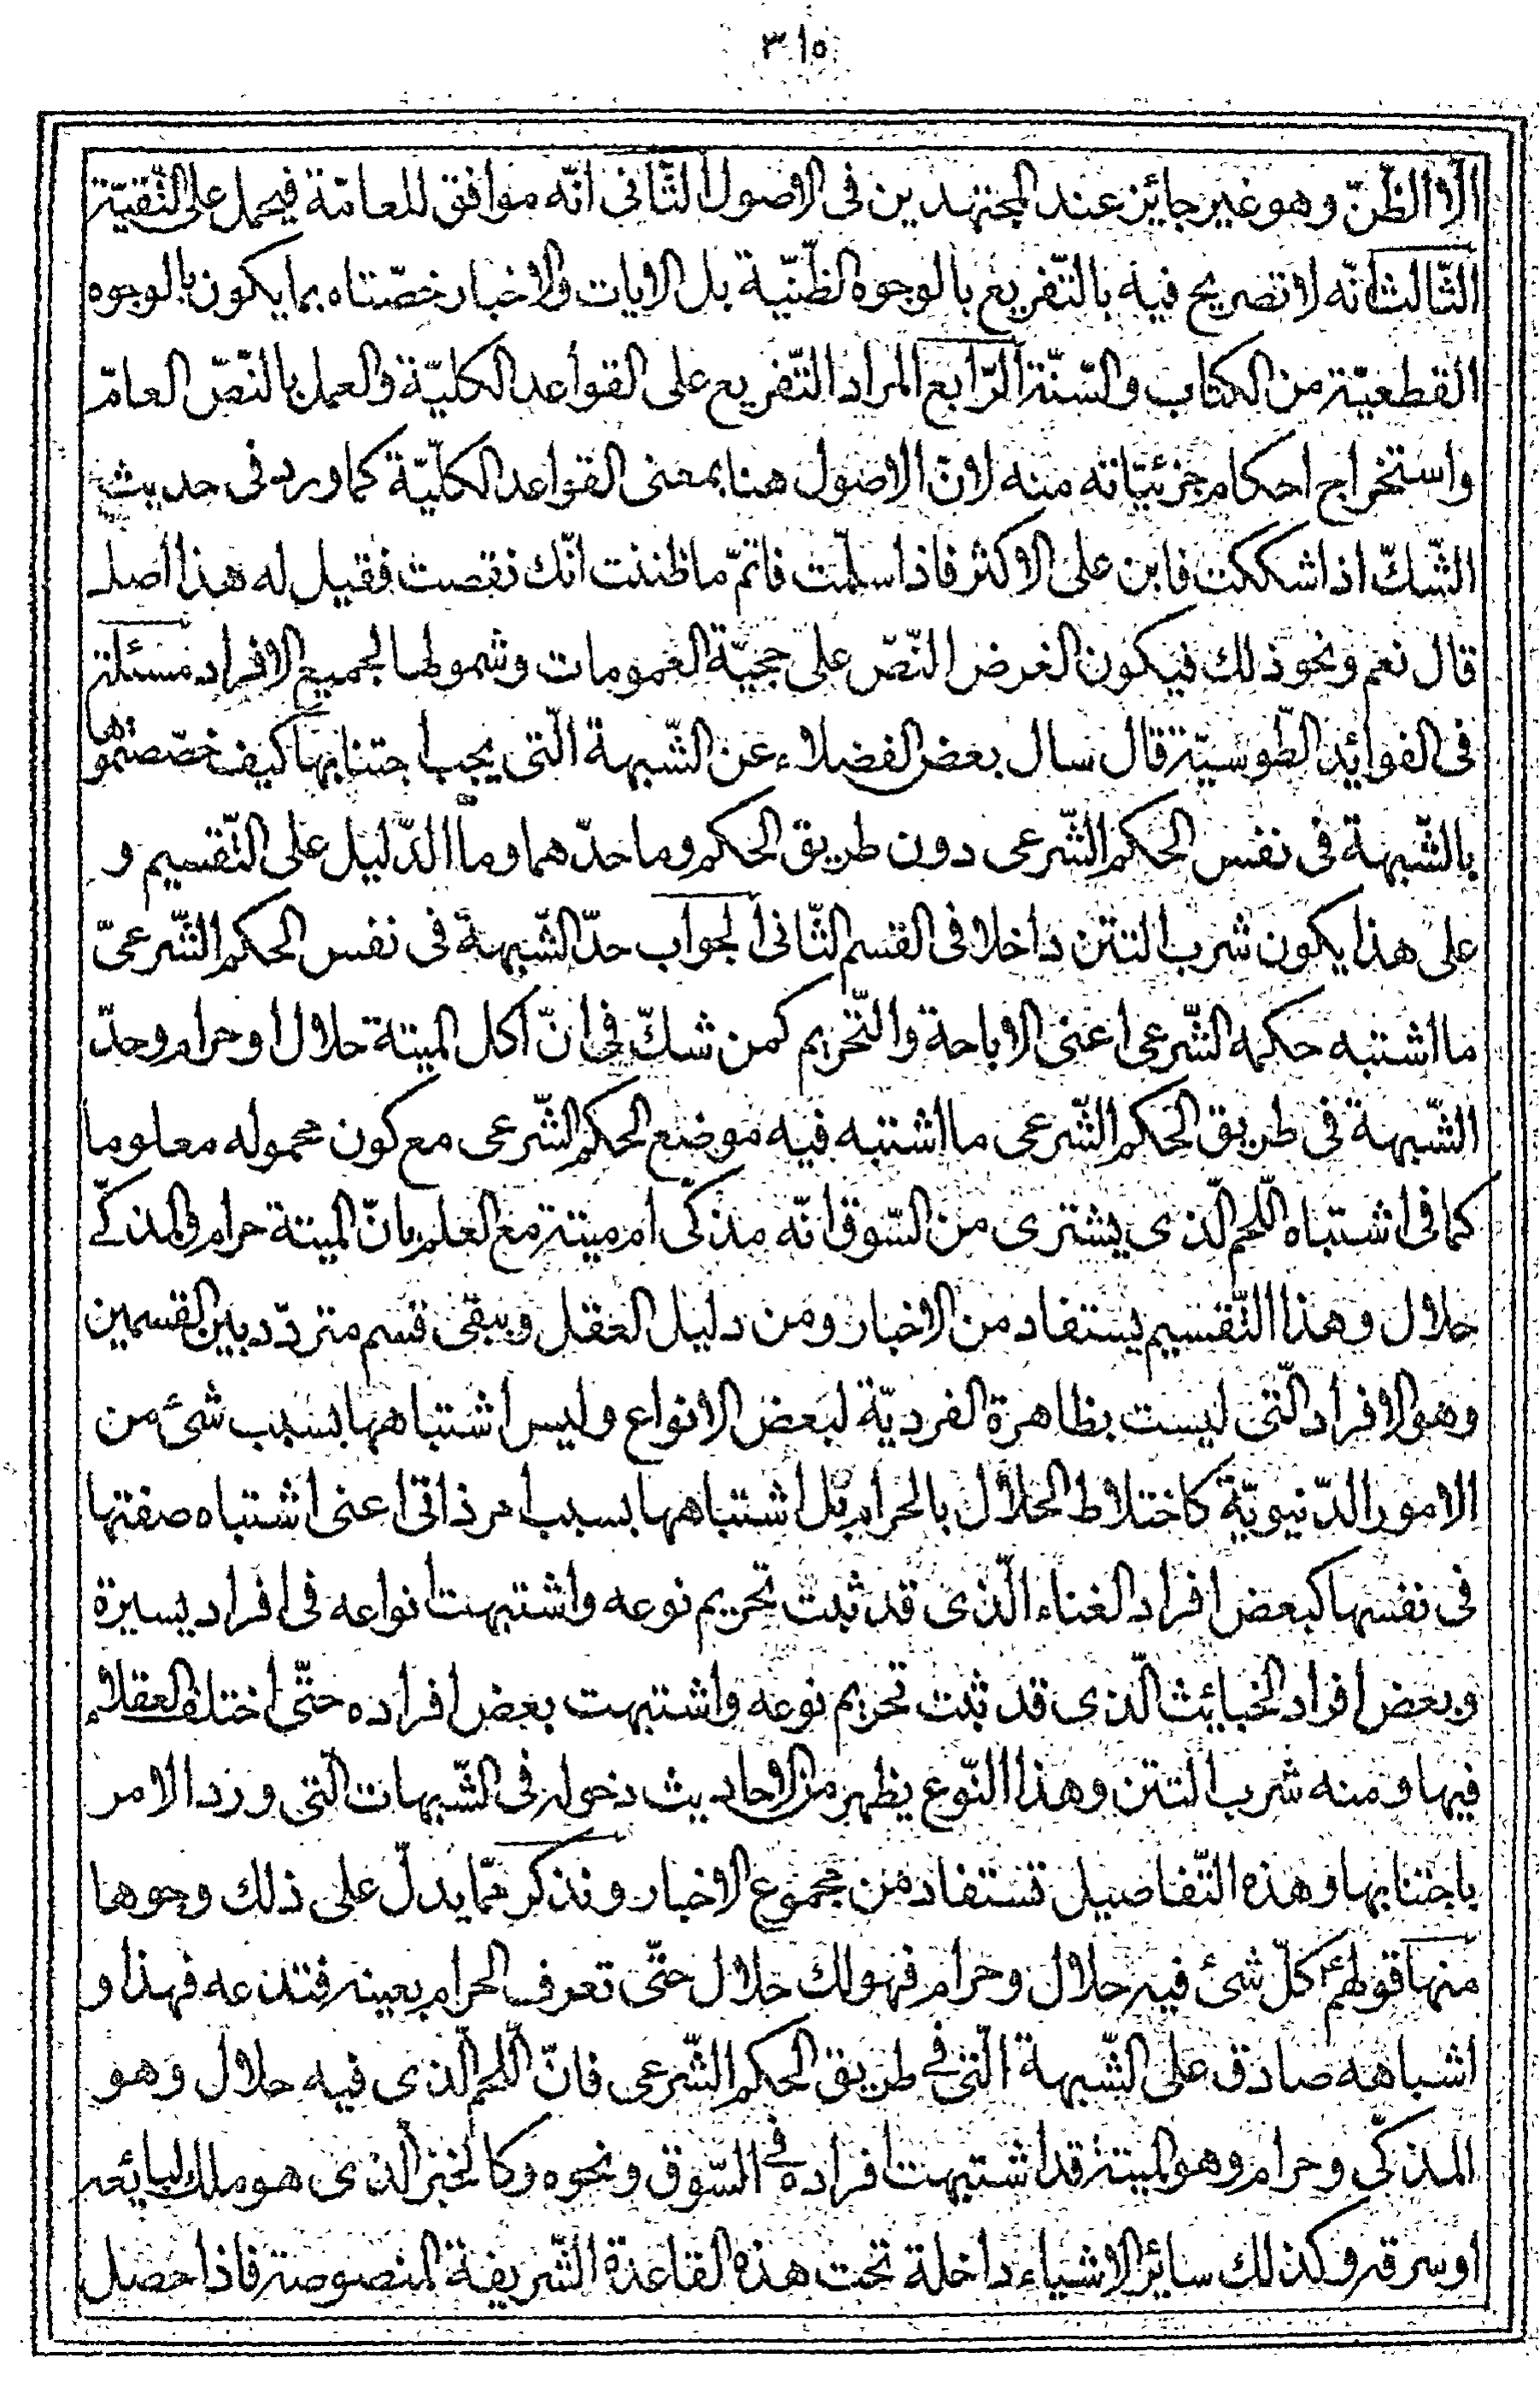 ٣١٥
الا الظنّ وهو غير جائز عند المجتهدين فى الاصول الثّانى انّه موافق للعامّة فيحمل على التّقيّة
الثّالث انّه لا تصريح فيه بالتّفريع بالوجوه الظنّية بل الايات والاخبار خصّتاه بما يكون بالوجوه
القطعيّة من الكتاب والسّنّة الرّابع المراد التّفريع على القواعد الكليّة والعمل بالنّصّ العامّ
واستخراج احكام جزئيّاته منه لانّ الاصول هنا بمعنى القواعد الكلّيّة كما ورد فى حديث
الشّكّ اذا شككت فابن على الاكثر فاذا سلّمت فاتمّ ما ظننت انّك نقصت فقيل له هذا اصل
قال نعم ونحو ذلك فيكون الغرض النّصّ على حجيّة العمومات وشمولها لجميع الافراد مسئلة
فى الفوائد الطّوسيّة قال سال بعض الفضلاء عن الشّبهة الّتى يجب اجتنابها كيف خصّصتموها
بالشّبهة فى نفس الحكم الشّرعى دون طريق الحكم وما حدّهما وما الدّليل على التّقسيم و
على هذا يكون شرب التتن داخلا فى القسم الثّانى الجواب حدّ الشّبهة فى نفس الحكم الشّرعىّ
ما اشتبه حكمه الشّرعى اعنى الاباحة والتّحريم كمن شكّ فى انّ اكل الميتة حلال او حرام وحدّ
الشّبهة فى طريق الحكم الشّرعى ما اشتبه فيه موضع الحكم الشّرعى مع كون محموله معلوما
كما فى اشتباه اللّحم الّذى يشترى من السّوق انّه مذكّى ام ميتة مع العلم بانّ الميتة حرام والمذكّى
حلال وهذا التّقسيم يستفاد من الاخبار ومن دليل العقل ويبقى قسم متردّد بين القسمين
وهو الافراد الّتى ليست بظاهرة الفرديّة لبعض الانواع وليس اشتباهها بسبب شئ من
الامور الدّنيويّة كاختلاط الحلال بالحرام بل اشتباهها بسبب امر ذاتى اعنى اشتباه صفتها
فى نفسها كبعض افراد الغناء الّذى قد ثبت تحريم نوعه واشتبهت انواعه فى افراد يسيرة
وبعض افراد الخبائث الّذى قد ثبت تحريم نوعه واشتبهت بعض افراده حتّى اختلف العقلاء
فيها ومنه شرب التتن وهذا النّوع يظهر من الاحاديث دخوله فى الشّبهات الّتى ورد الامر
باجتنابها وهذه التّفاصيل تستفاد من مجموع الاخبار ونذكر ممّا يدلّ على ذلك وجوها
منها قولهم ع كلّ شئ فيه حلال وحرام فهو لك حلال حتّى تعرف الحرام بعينه فتدعه فهذا و
اشباهه صادق على الشّبهة الّتى فى طريق الحكم الشّرعى فانّ اللّحم الّذى فيه حلال وهو
المذكّى وحرام وهو الميتة قد اشتبهت افراده فى السّوق ونحوه وكالخبز الّذى هو ملك لبايعه
او سرقه وكذلك سائر الاشياء داخلة تحت هذه القاعدة الشّريفة المنصوصة فاذا حصل